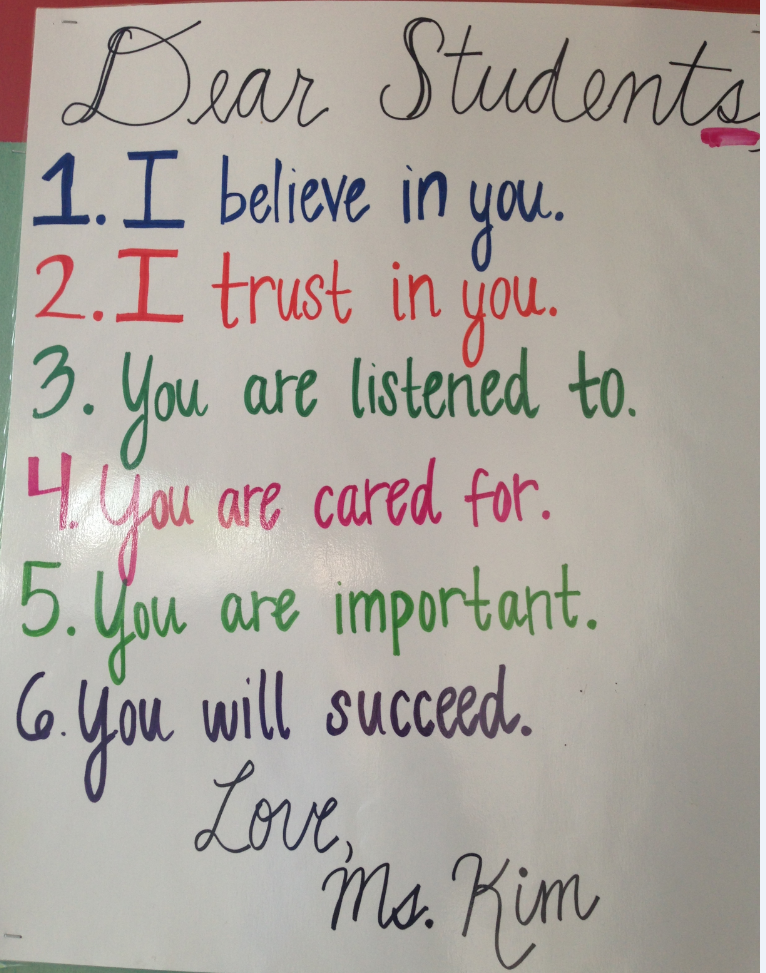 Dear Students,
1. I believe in you.
2. I trust in you.
3. You are listened to.
4. You are cared for.
5. You are important.
6. You will succeed.
Love,
Ms. Kim